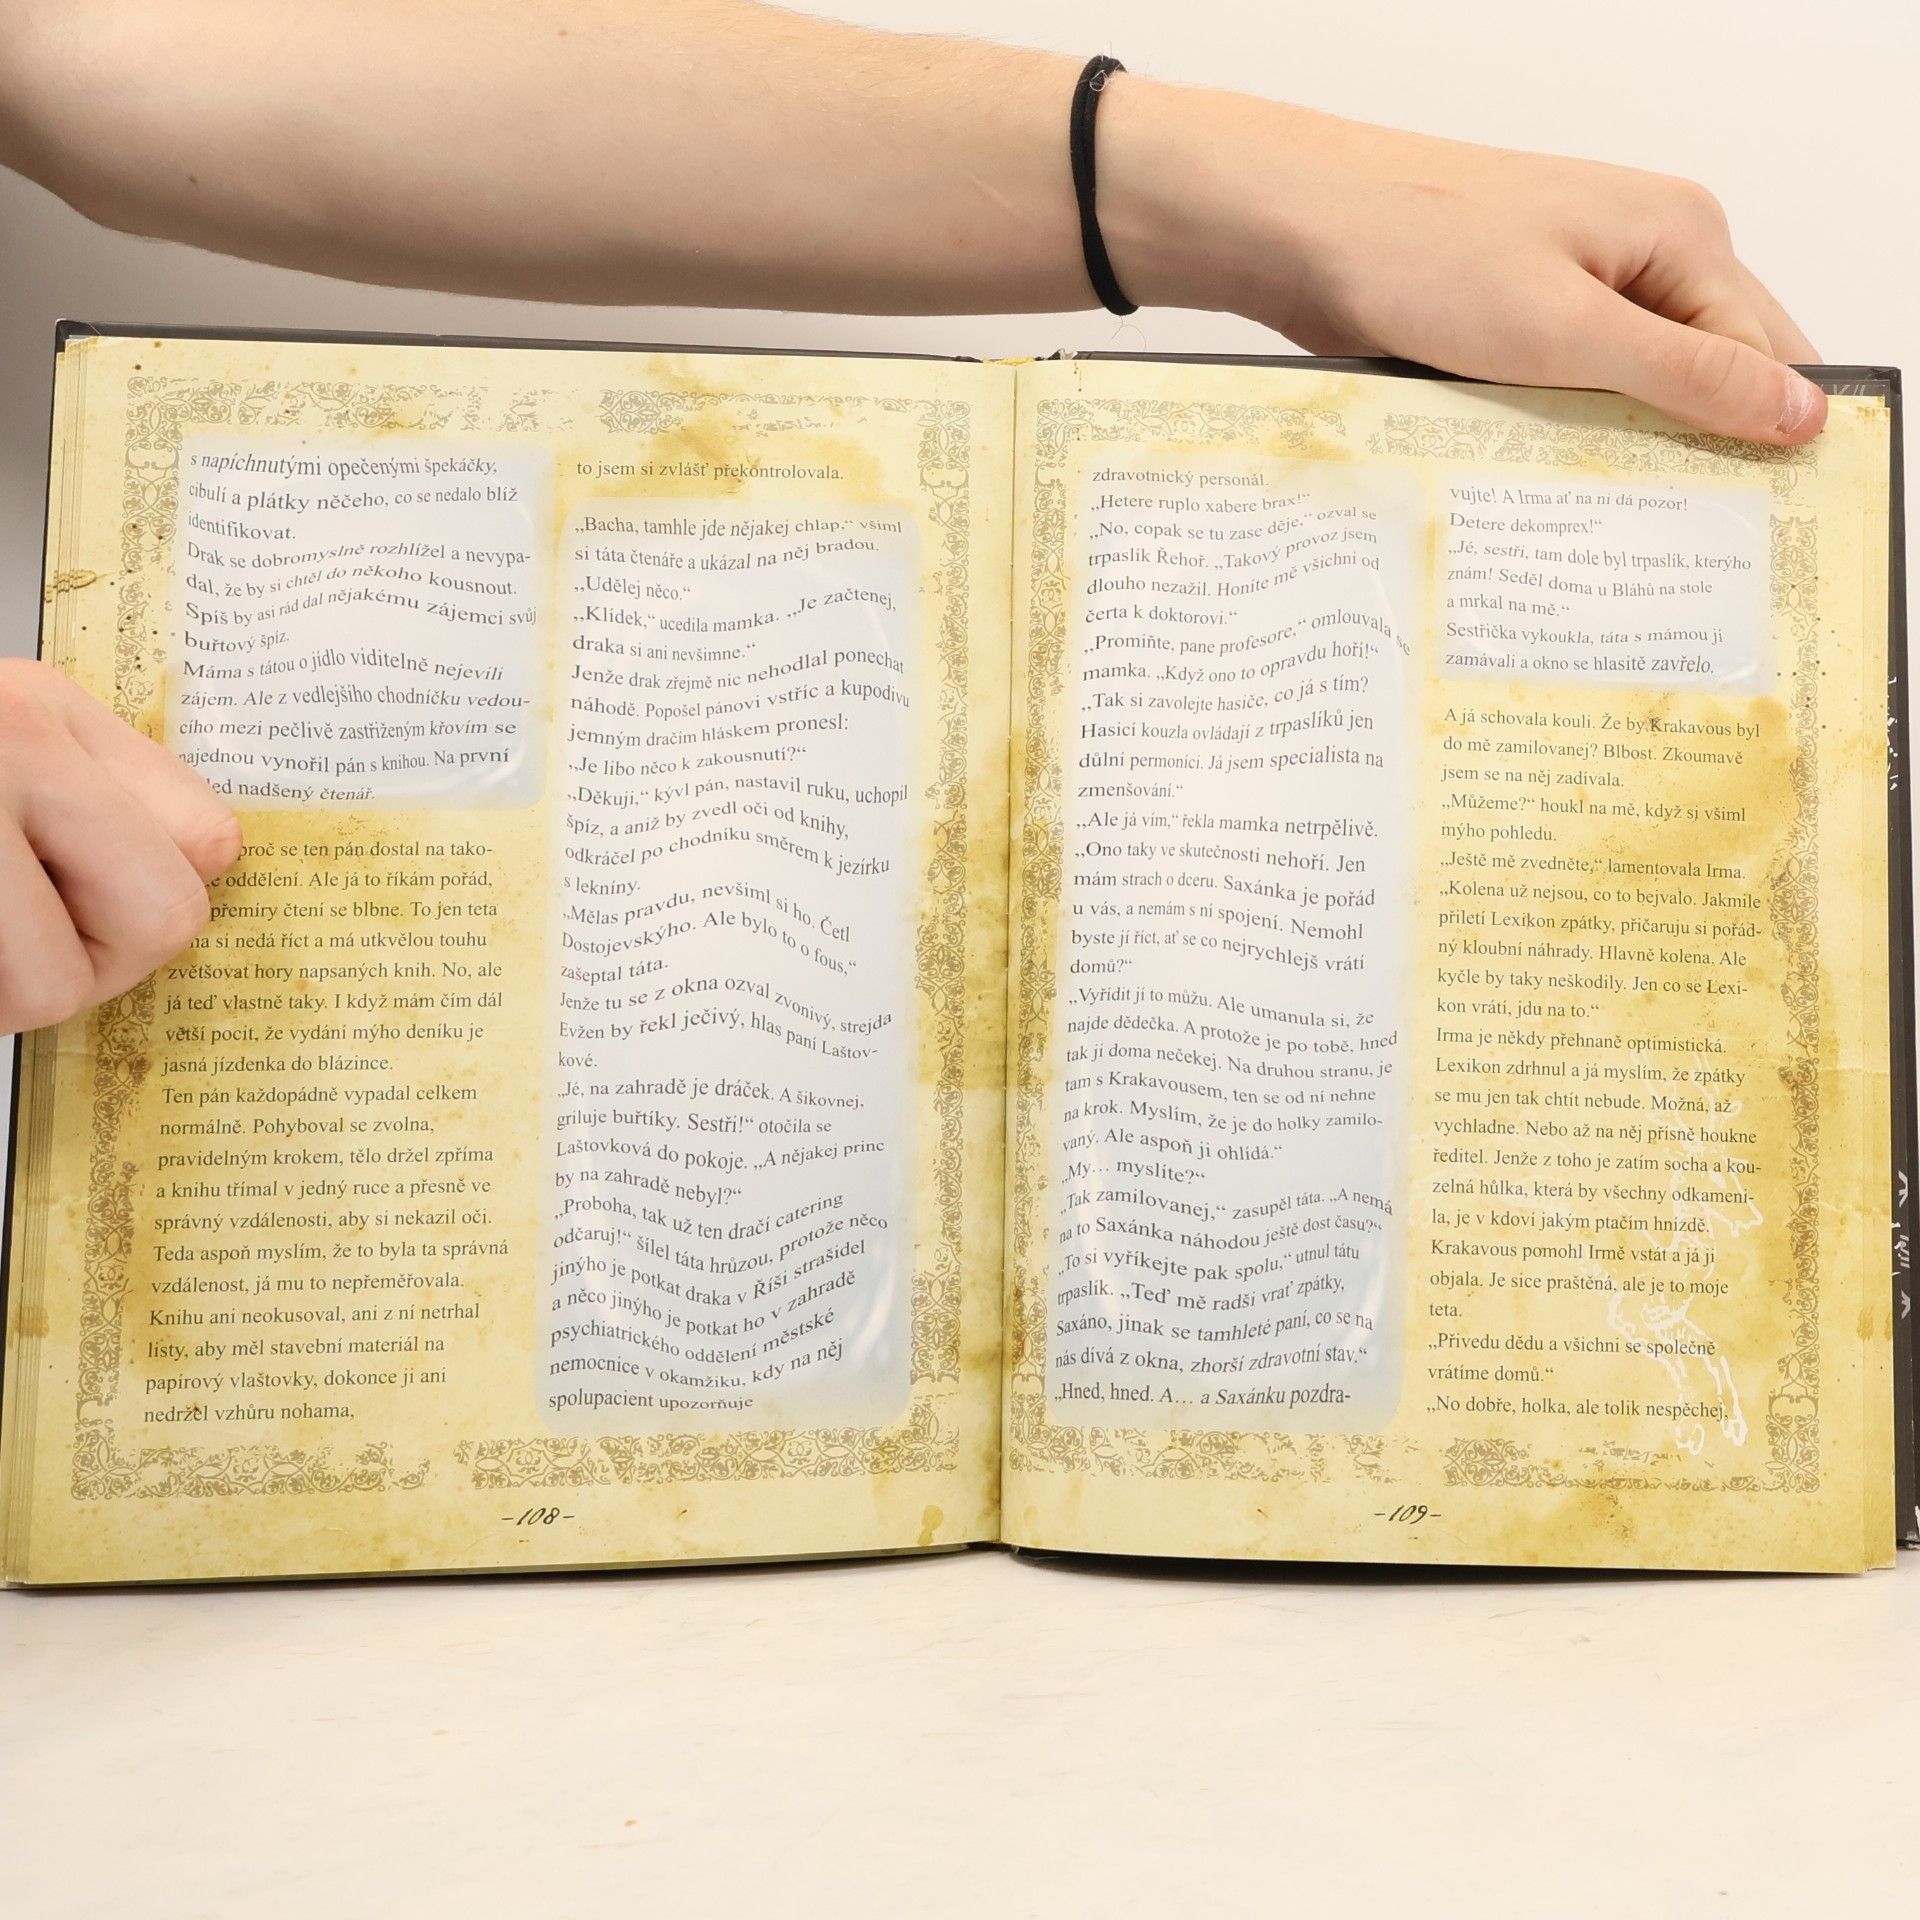 s napíchnutými opečenými špekáčky,
cibulí a plátky něčeho, co se nedalo blíž
identifikovat.
Drak se dobromyslně rozhlížel a nevypa-
dal, že by si chtěl do někoho kousnout.
Spíš by asi rád dal nějakému zájemci svůj
buřtový špíz.
Máma s tátou o jídlo viditelně nejevili
zájem. Ale z vedlejšího chodníčku vedou-
cího mezi pečlivě zastřiženým křovím se
najednou vynořil pán s knihou. Na první
nadšený čtenář.
proč se ten pán dostal na tako-
oddělení. Ale já to říkám pořád,
přemíry čtení se blbne. To jen teta
si nedá říct a má utkvělou touhu
zvětšovat hory napsaných knih. No, ale
já teď vlastně taky. I když mám čím dál
větší pocit, že vydání mýho deníku je
jasná jízdenka do blázince.
Ten pán každopádně vypadal celkem
normálně. Pohyboval se zvolna,
pravidelným krokem, tělo držel zpříma
a knihu třímal v jedný ruce a přesně ve
správný vzdálenosti, aby si nekazil oči.
Teda aspoň myslím, že to byla ta správná
vzdálenost, já mu to nepřeměřovala.
Knihu ani neokusoval, ani z ní netrhal
listy, aby měl stavební materiál na
papírový vlaštovky, dokonce ji ani
nedržel vzhůru nohama,
to jsem si zvlášť překontrolovala.
„Bacha, tamhle jde nějakej chlap,“ všiml
si táta čtenáře a ukázal na něj bradou.
„Udělej něco.“
„Klídek,“ ucedila mamka. „Je začtenej,
draka si ani nevšimne.“
Jenže drak zřejmě nic nehodlal ponechat
náhodě. Popošel pánovi vstříc a kupodivu
jemným dračím hláskem pronesl:
„Je libo něco k zakousnutí?“
„Děkuji,“ kývl pán, nastavil ruku, uchopil
špíz, a aniž by zvedl oči od knihy,
odkráčel po chodníku směrem k jezírku
s lekníny.
„Mělas pravdu, nevšiml si ho. Četl
Dostojevskýho. Ale bylo to o fous,“
zašeptal táta.
Jenže tu se z okna ozval zvonivý, strejda
Evžen by řekl ječivý, hlas paní Laštov-
kové.
„Jé, na zahradě je dráček. A šikovnej,
griluje buřtíky. Sestři!“ otočila se
Laštovková do pokoje. „A nějakej princ
by na zahradě nebyl?“
„Proboha, tak už ten dračí catering
odčaruj!“ šílel táta hrůzou, protože něco
jinýho je potkat draka v Říši strašidel
a něco jinýho je potkat ho v zahradě
psychiatrického oddělení městské
nemocnice v okamžiku, kdy na něj
spolupacient upozorňuje
-108-
zdravotnický personál.
„Hetere ruplo xabere brax!“
„No, copak se tu zase děje,“ ozval se
trpaslík Řehoř. „Takový provoz jsem
dlouho nezažil. Honíte mě všichni od
čerta k doktorovi.“
„Promiňte, pane profesore,“ omlouvala se
mamka. „Když ono to opravdu hoří!“
„Tak si zavolejte hasiče, co já s tím?
Hasicí kouzla ovládají z trpaslíků jen
důlní permoníci. Já jsem specialista na
zmenšování.“
„Ale já vím,“ řekla mamka netrpělivě.
„Ono taky ve skutečnosti nehoří. Jen
mám strach o dceru. Saxánka je pořád
u vás, a nemám s ní spojení. Nemohl
byste jí říct, ať se co nejrychlejš vrátí
domů?“
„Vyřídit jí to můžu. Ale umanula si, že
najde dědečka. A protože je po tobě, hned
tak ji doma nečekej. Na druhou stranu, je
tam s Krakavousem, ten se od ní nehne
na krok. Myslím, že je do holky zamilo-
vaný. Ale aspoň ji ohlídá.“
„My… myslíte?“
„Tak zamilovanej,“ zasupěl táta. „A nemá
na to Saxánka náhodou ještě dost času?“
„To si vyříkejte pak spolu,“ utnul tátu
trpaslík. „Teď mě radši vrať zpátky,
Saxáno, jinak se tamhleté paní, co se na
nás dívá z okna, zhorší zdravotní stav.“
„Hned, hned. A… a Saxánku pozdra-
vujte! A Irma ať na ni dá pozor!
Detere dekomprex!“
„Jé, sestři, tam dole byl trpaslík, kterýho
znám! Seděl doma u Bláhů na stole
a mrkal na mě.“
Sestřička vykoukla, táta s mámou jí
zamávali a okno se hlasitě zavřelo.
A já schovala kouli. Že by Krakavous byl
do mě zamilovanej? Blbost. Zkoumavě
jsem se na něj zadívala.
„Můžeme?“ houkl na mě, když si všiml
mýho pohledu.
„Ještě mě zvedněte,“ lamentovala Irma.
„Kolena už nejsou, co to bejvalo. Jakmile
přiletí Lexikon zpátky, přičaruju si pořád-
ný kloubní náhrady. Hlavně kolena. Ale
kyčle by taky neškodily. Jen co se Lexi-
kon vrátí, jdu na to.“
Irma je někdy přehnaně optimistická.
Lexikon zdrhnul a já myslím, že zpátky
se mu jen tak chtít nebude. Možná, až
vychladne. Nebo až na něj přísně houkne
ředitel. Jenže z toho je zatím socha a kou-
zelná hůlka, která by všechny odkameni-
la, je v kdoví jakým ptačím hnízdě.
Krakavous pomohl Irmě vstát a já ji
objala. Je sice praštěná, ale je to moje
teta.
„Přivedu dědu a všichni se společně
vrátíme domů.“
„No dobře, holka, ale tolik nespěchej,
-109-